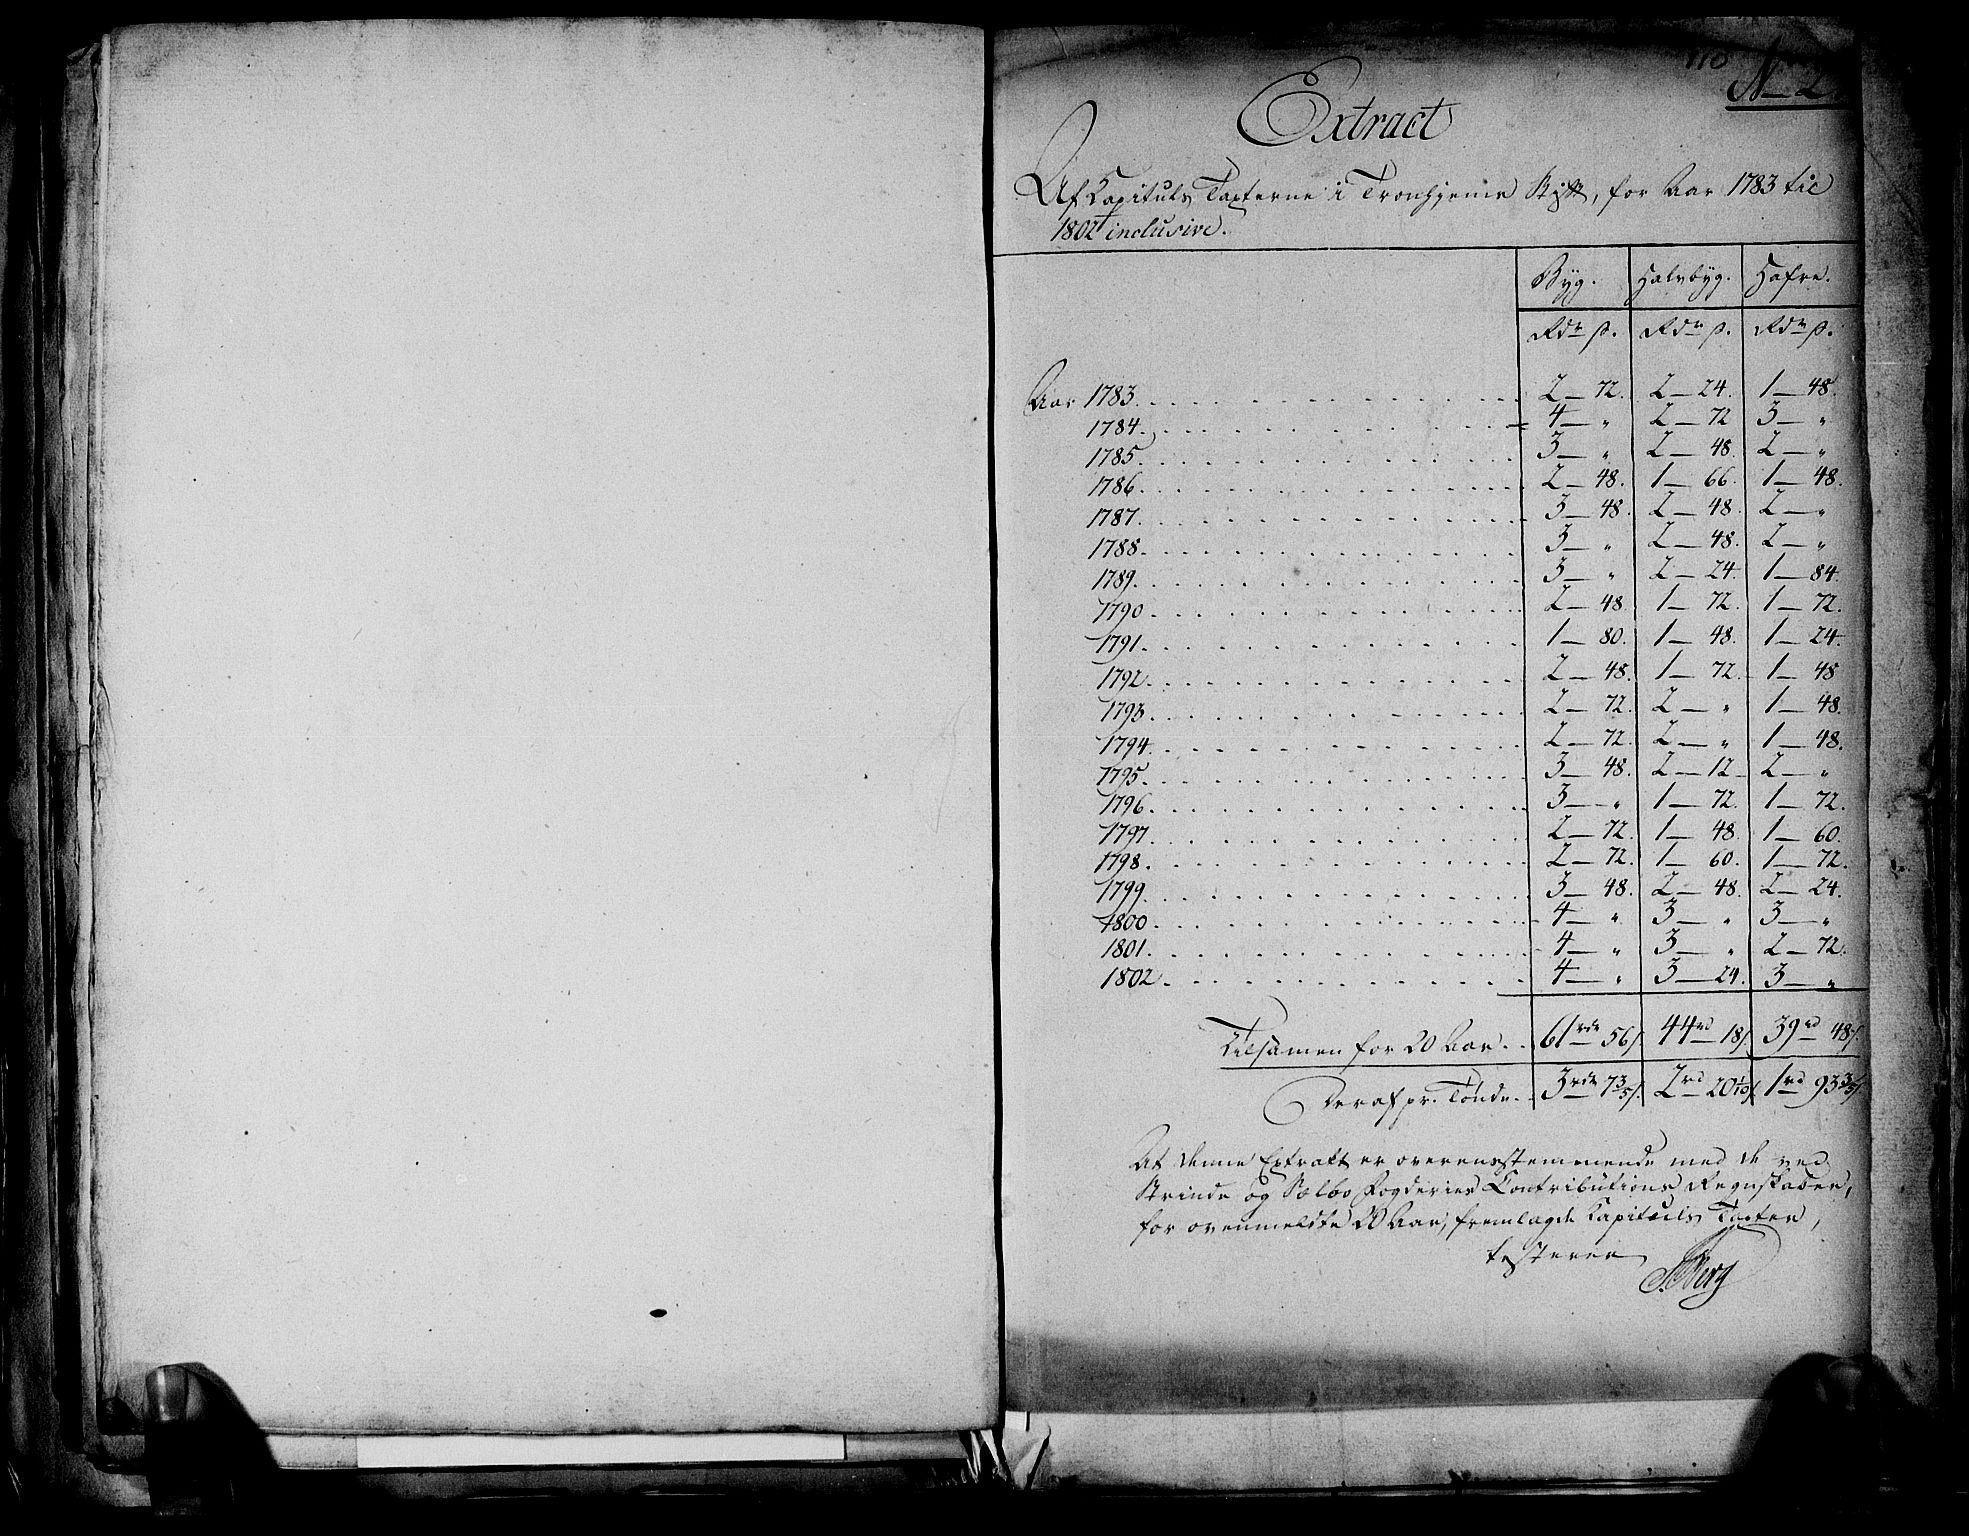 118
N 2
Extract
Af Capituls Taxterne i Tronhjems Stift, for Aar 1783 til
1802 inclusive.
Byg. Halvbyg. Hafre.
Rdr β. Rdr β. Rdr β.
Aar 1783. 2 — 72. 2 — 24. 1 — 48.
1784. 4 — " 2 — 72 3 — "
1785. 3 — " 2 — 48. 2 — "
1786. 2 — 48. 1 — 66. 1 — 48.
1787. 3 — 48. 2 — 48. 2 — "
1788. 3 — " 2 — 48. 2 — "
1789. 3 — " 2 — 24. 1 — 84.
1790 2 — 48 1 — 72. 1 — 72.
1791. 1 — 80. 1 — 48. 1 — 24.
1792. 2 — 48. 1 — 72. 1 — 48
1793. 2 — 72. 2 — " 1 — 48.
1794. 2 — 72. 2 — " 1 — 48.
1795. 3 — 48. 2 — 12 2 — "
1796. 3 — " 1 — 72. 1 — 72.
1797. 2 — 72. 1 — 48. 1 — 60.
1798. 2 — 72. 1 — 60. 1 — 72.
1799. 3 — 48. 2 — 48. 2 — 24.
1800. 4 — " 3 — " 3 — "
1801. 4 — " 3 — " 2 — 72.
1802. 4 — " 3 — 24. 3 — "
Tilsamen for 20 Aar. 61 rdr 56 β. 44 rd 18 β. 39 rd 48 β.
Deraf pr. Tønde. 3 rdr 7 3/5 β. 2 rd 20 1/10 β. 1 rd 93 3/5 β.
At denne Extrakt er overensstemmende med de ved
Strinde og Sælbo Fogderies Contributions Regnskaber,
for ovenmeldte 20 Aar, fremlagde Capituls Taxter,
testerer
Berg